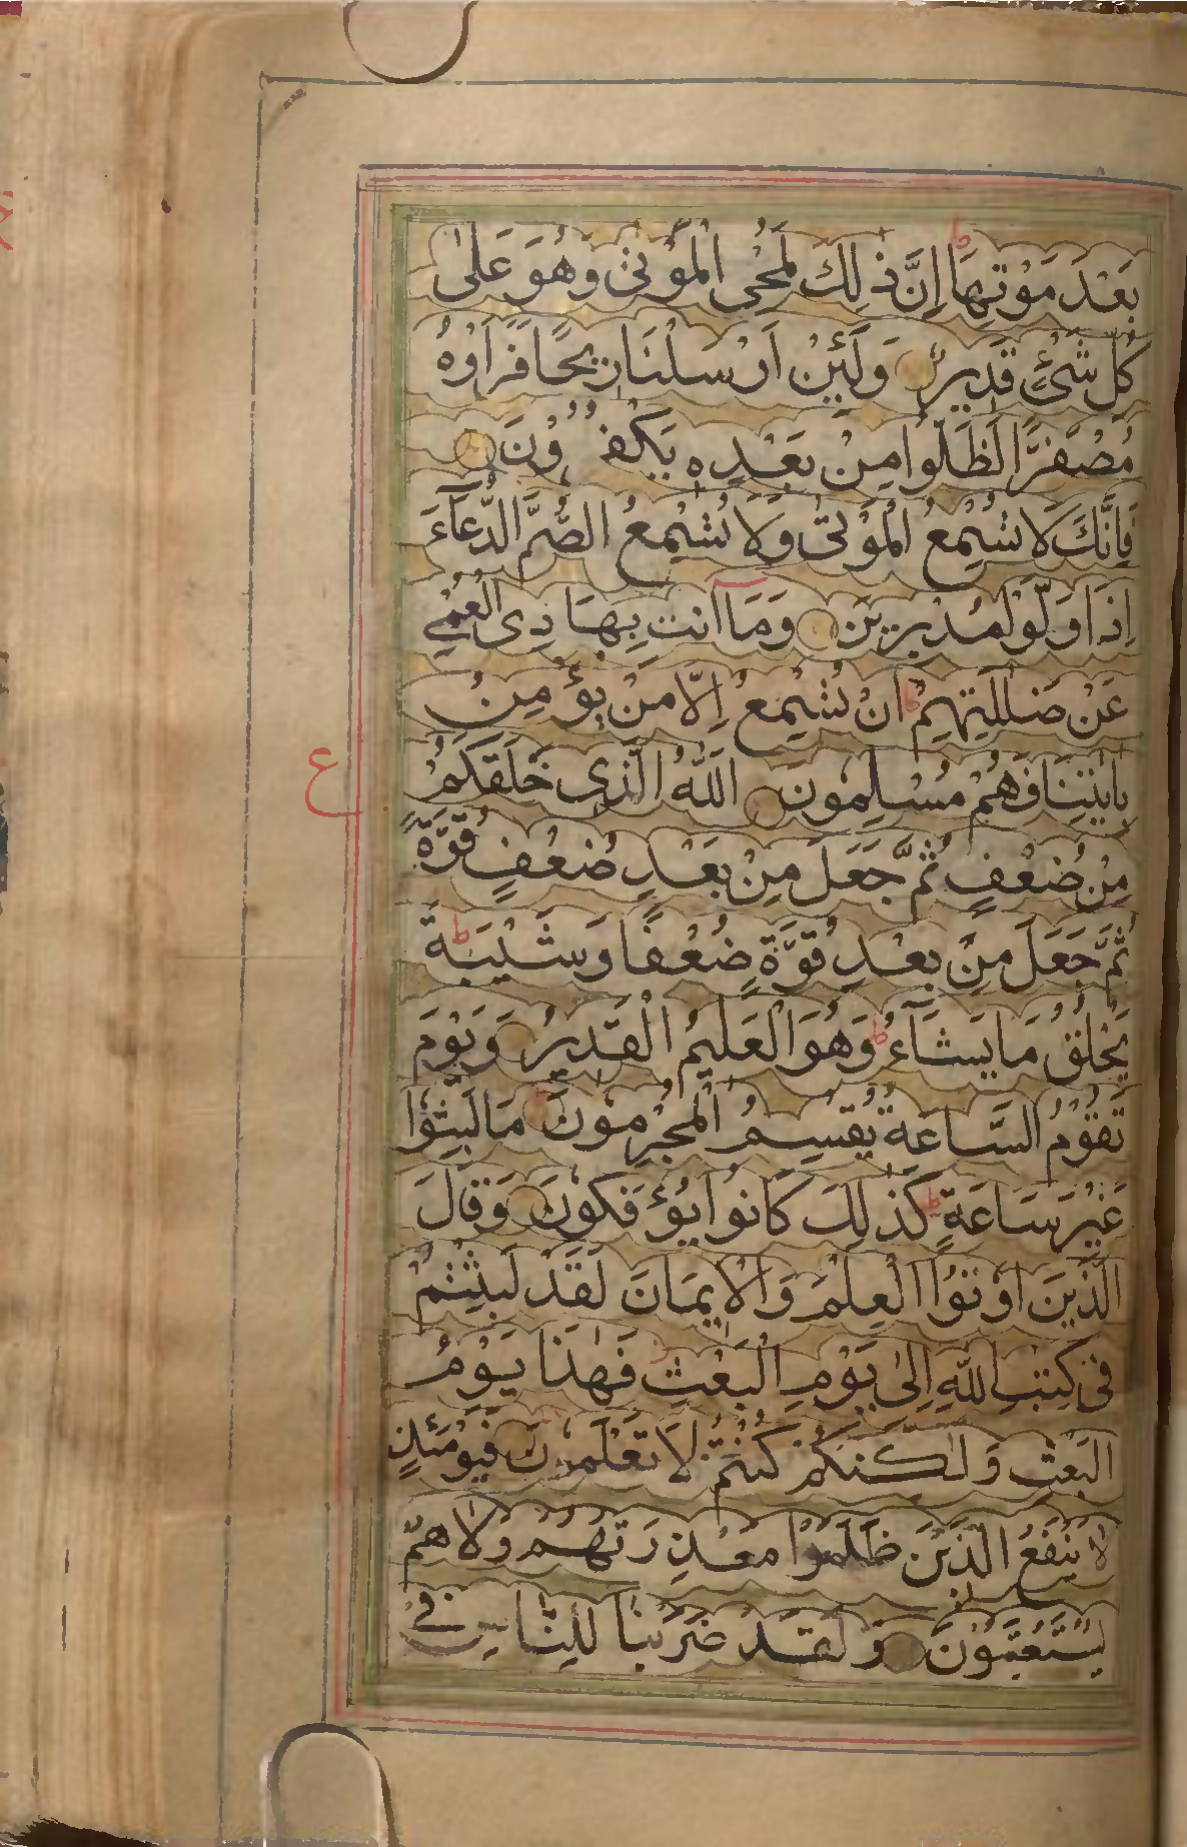 بَعْدَ مَوْتِهَا ط اِنَّ ذٰلِكَ لَمُحْيِ الْمَوْتٰى وَهُوَ عَلٰى
كُلِّ شَىْءٍ قَدِيْرٌ وَلَئِنْ اَرْسَلْنَا رِيْحًا فَرَاَوْهُ
مُصْفَرًّا لَّظَلُّوْا مِنْ بَعْدِهٖ يَكْفُرُوْنَ
فَاِنَّكَ لَا تُسْمِعُ الْمَوْتٰى وَلَا تُسْمِعُ الصُّمَّ الدُّعَآءَ
اِذَا وَلَّوْا مُدْبِرِيْنَ وَمَآ اَنْتَ بِهَادِى الْعُمْىِ
عَنْ ضَلٰلَتِهِمْ ط اِنْ تُسْمِعُ اِلَّا مَنْ يُؤْمِنُ
بِاٰيٰتِنَا فَهُمْ مُسْلِمُوْنَ اَللّٰهُ الَّذِى خَلَقَكُمْ
ع
مِنْ ضُعْفٍ ثُمَّ جَعَلَ مِنْ بَعْدِ ضُعْفٍ قُوَّةً
ثُمَّ جَعَلَ مِنْ بَعْدِ قُوَّةٍ ضُعْفًا وَشَيْبَةً ط
يَخْلُقُ مَا يَشَآءُ ط وَهُوَ الْعَلِيْمُ الْقَدِيْرُ وَيَوْمَ
تَقُوْمُ السَّاعَةُ يُقْسِمُ الْمُجْرِمُوْنَ مَا لَبِثُوْا
غَيْرَ سَاعَةٍ ط كَذٰلِكَ كَانُوْا يُؤْفَكُوْنَ وَقَالَ
الَّذِيْنَ اُوْتُوا الْعِلْمَ وَالْاِيْمَانَ لَقَدْ لَبِثْتُمْ
فِى كِتٰبِ اللّٰهِ اِلٰى يَوْمِ الْبَعْثِ ز فَهٰذَا يَوْمُ
الْبَعْثِ وَلٰكِنَّكُمْ كُنْتُمْ لَا تَعْلَمُوْنَ فَيَوْمَئِذٍ
لَا يَنْفَعُ الَّذِيْنَ ظَلَمُوْا مَعْذِرَتُهُمْ وَلَا هُمْ
يُسْتَعْتَبُوْنَ وَلَقَدْ ضَرَبْنَا لِلنَّاسِ فِىْ